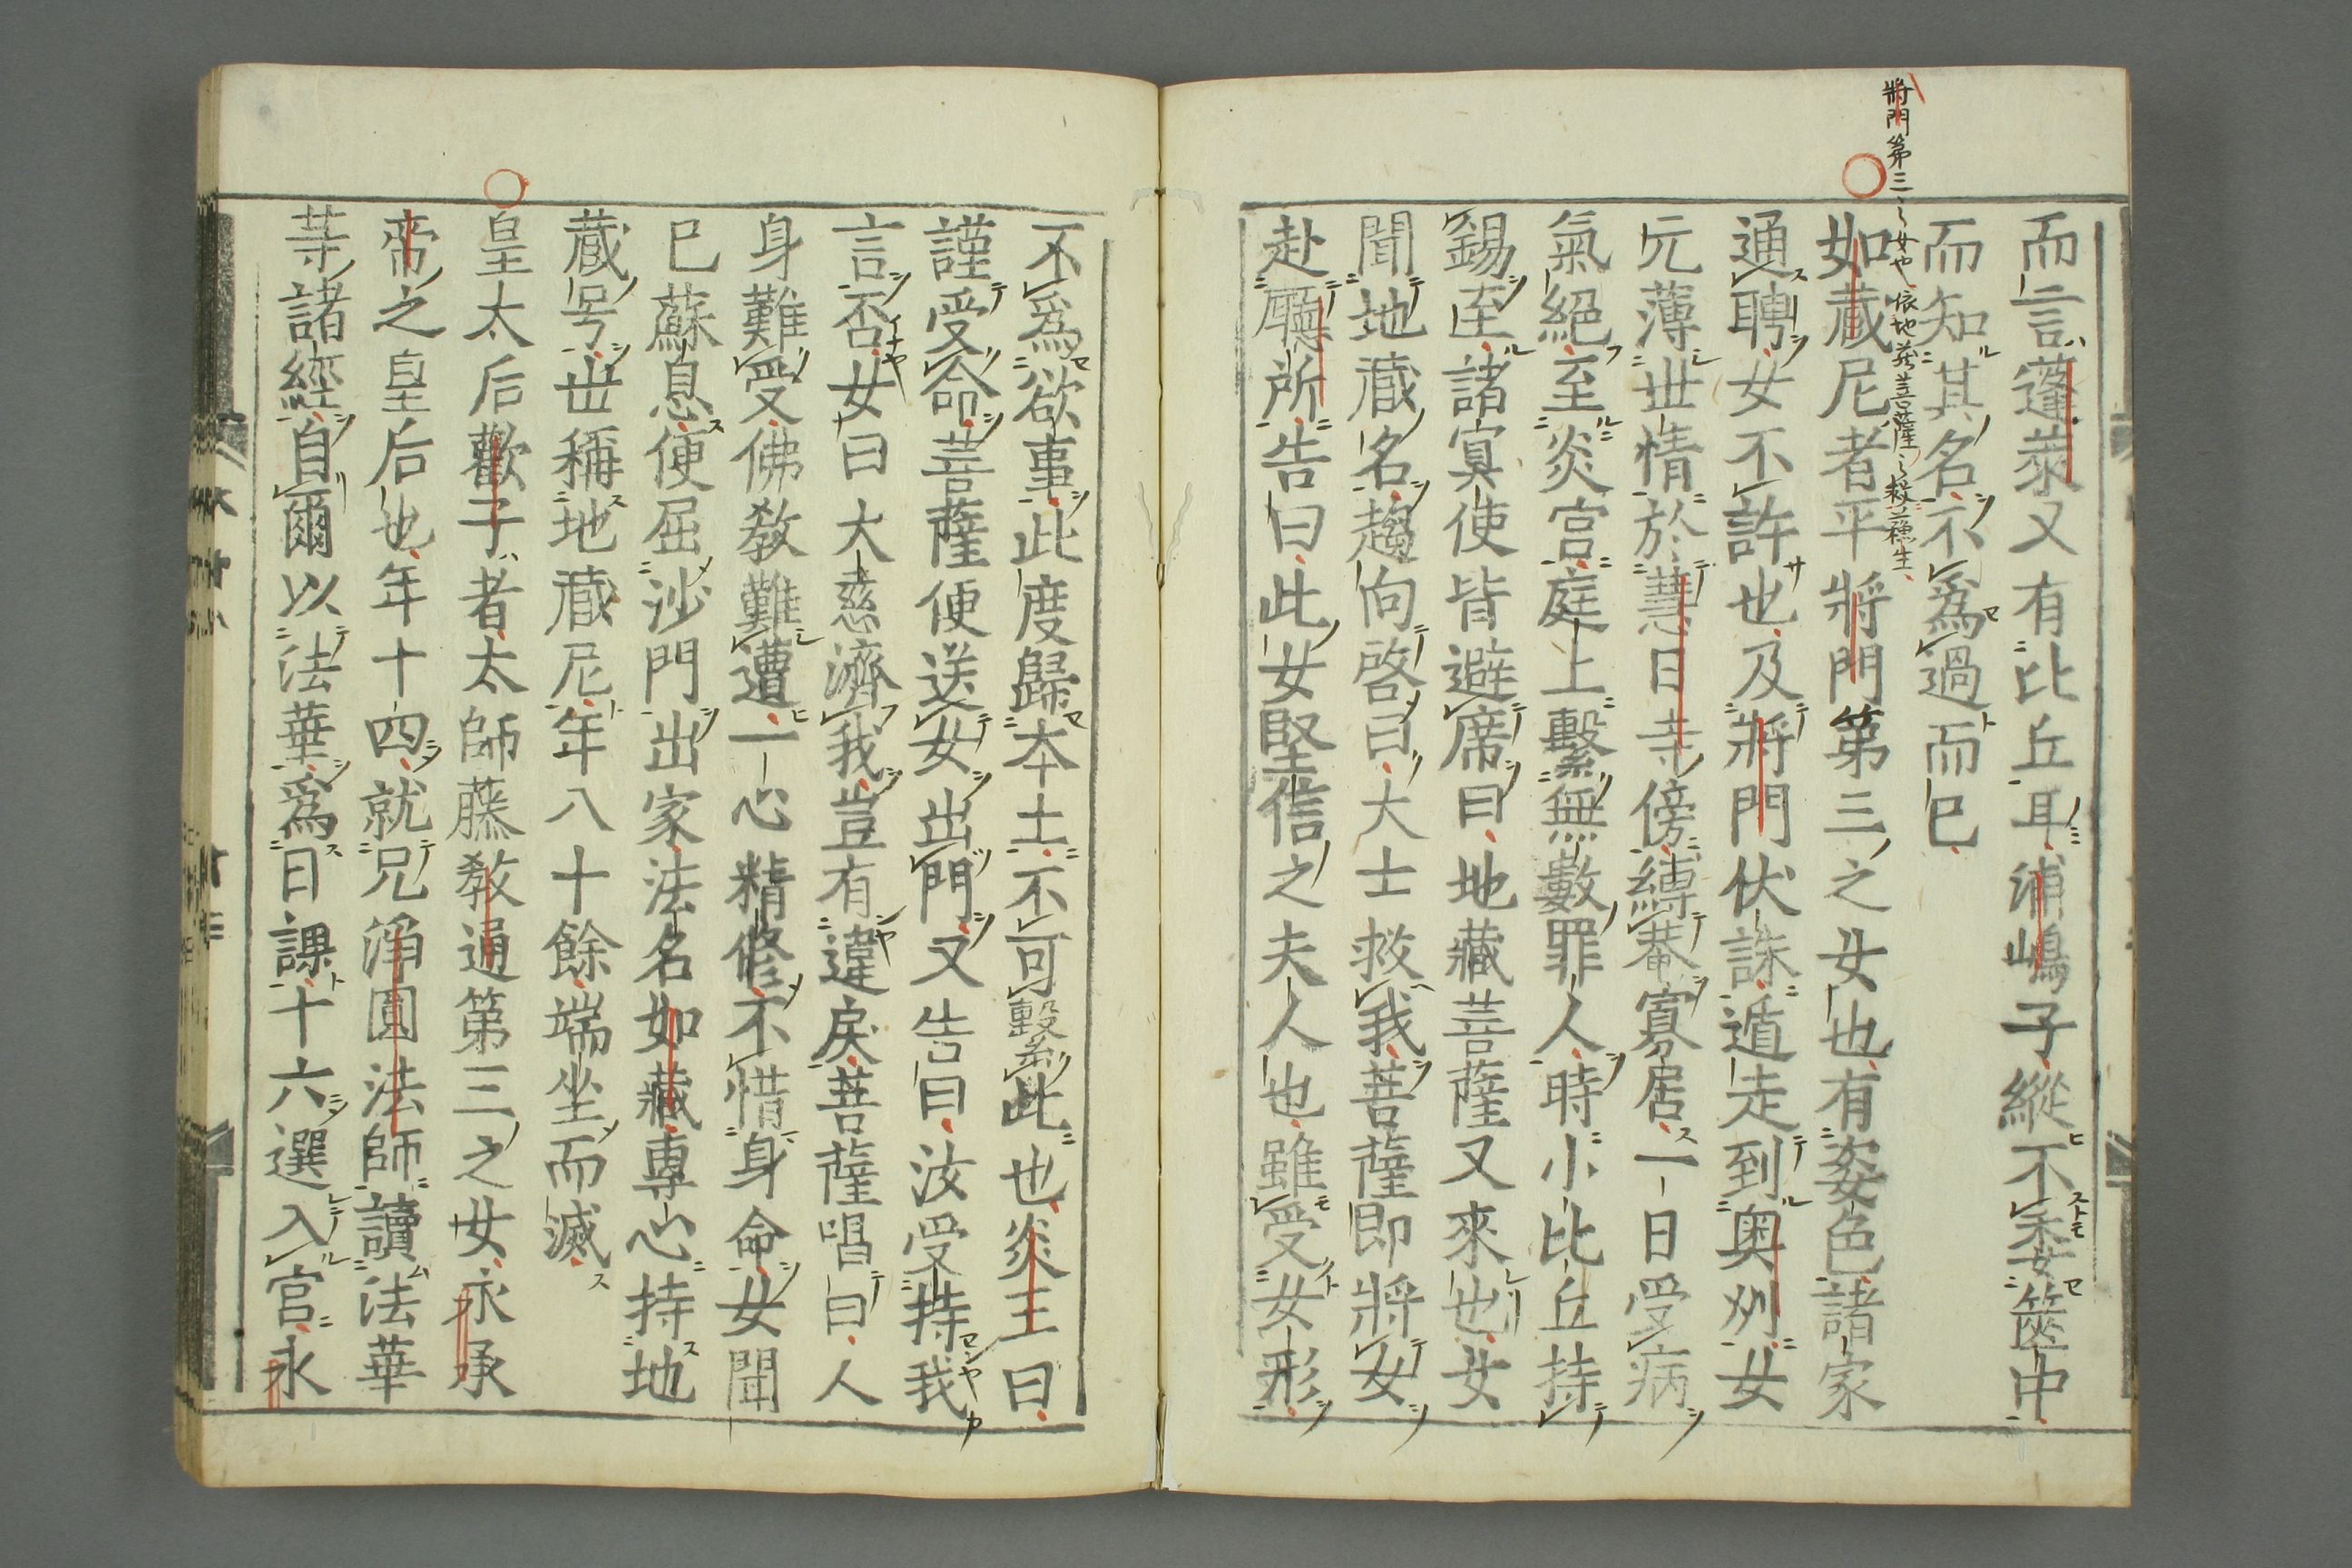 將門第三之女也依地蔵菩薩之救蘇生
而言蓬萊又有比丘耳浦嶋子縱不委篋中
而知其名不爲過而已
如蔵尼者平將門第三之女也有姿色諸家
通聘女不許也及將門伏誅遁走到奥刕女
元薄世情於慧日寺傍縛菴寡居一日受病
氣絕至炎宮庭上繫無數罪人時小比丘持
錫至諸冥使皆避席曰地藏菩薩又來也女
聞地蔵名趨向啓曰大士救我菩薩即將女
赴廳所告曰此女堅信之夫人也雖受女形
不爲欲事此度歸本土不可繫此也炎王曰
謹受命菩薩便送女出門又告曰汝受持我
言否女曰大慈濟我豈有違戾菩薩唱曰人
身難受佛敎難遭一心精修不惜身命女聞
已蘇息便屈沙門出家法名如藏專心持地
蔵号世稱地蔵尼年八十餘端坐而滅
皇太后歡子者太師藤敎通第三之女永承
帝之皇后也年十四就兄淨圓法師讀法華
䓁諸經自爾以法華爲日課十六選入宮永